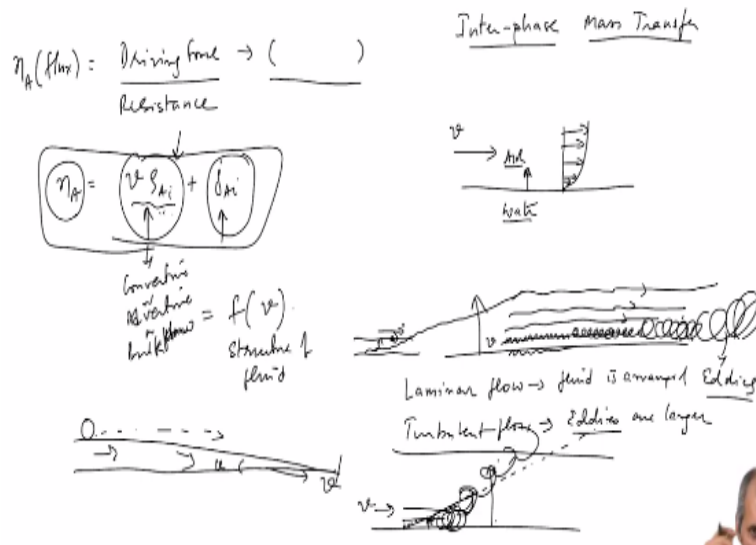 Inter-phase Mass Transfer
n_A (flux) = Driving force → ( )
Resistance
n_A = v ρ_Ai + j_Ai
v
Air
water
Convective
Advective
bulk flow
= f(v).
structure of
fluid
v
Laminar flow → fluid is arranged Eddies
Turbulent flow → Eddies are larger
v
v